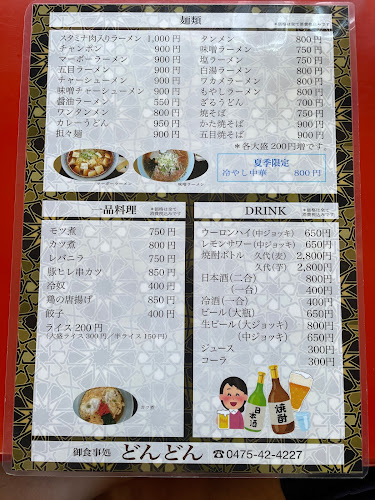 麺類
*価格は全て消費税込みです
スタミナ肉入りラーメン 1,000円
チャンポン 900円
マーボーラーメン 900円
五目ラーメン 900円
チャーシューメン 900円
味噌チャーシューメン 900円
醬油ラーメン 550円
ワンタンメン 800円
カレーうどん 950円
担々麺 900円
タンメン 800円
味噌ラーメン 750円
塩ラーメン 750円
白湯ラーメン 800円
ワカメラーメン 800円
もやしラーメン 800円
ざるうどん 700円
焼そば 750円
かた焼そば 900円
五目焼そば 900円
*各大盛200円増です。
マーボーラーメン
味噌ラーメン
夏季限定
冷やし中華 800円
一品料理
*価格は全て
消費税込みです
モツ煮 750円
カツ煮 800円
レバニラ 750円
豚ヒレ串カツ 850円
冷奴 400円
鶏の唐揚げ 850円
餃子 400円
ライス200円
(大盛ライス300円/半ライス150円)
カツ煮
DRINK
*価格は全て
消費税込みです
ウーロンハイ(中ジョッキ) 650円
レモンサワー(中ジョッキ) 650円
焼酎ボトル 久代(麦) 2,800円
久代(芋) 2,800円
日本酒(二合) 800円
(一合) 400円
冷酒(一合) 400円
ビール(大瓶) 650円
生ビール(大ジョッキ) 800円
(中ジョッキ) 650円
ジュース 300円
コーラ 300円
日本酒
焼酎
御食事処 どんどん ☎0475-42-4227